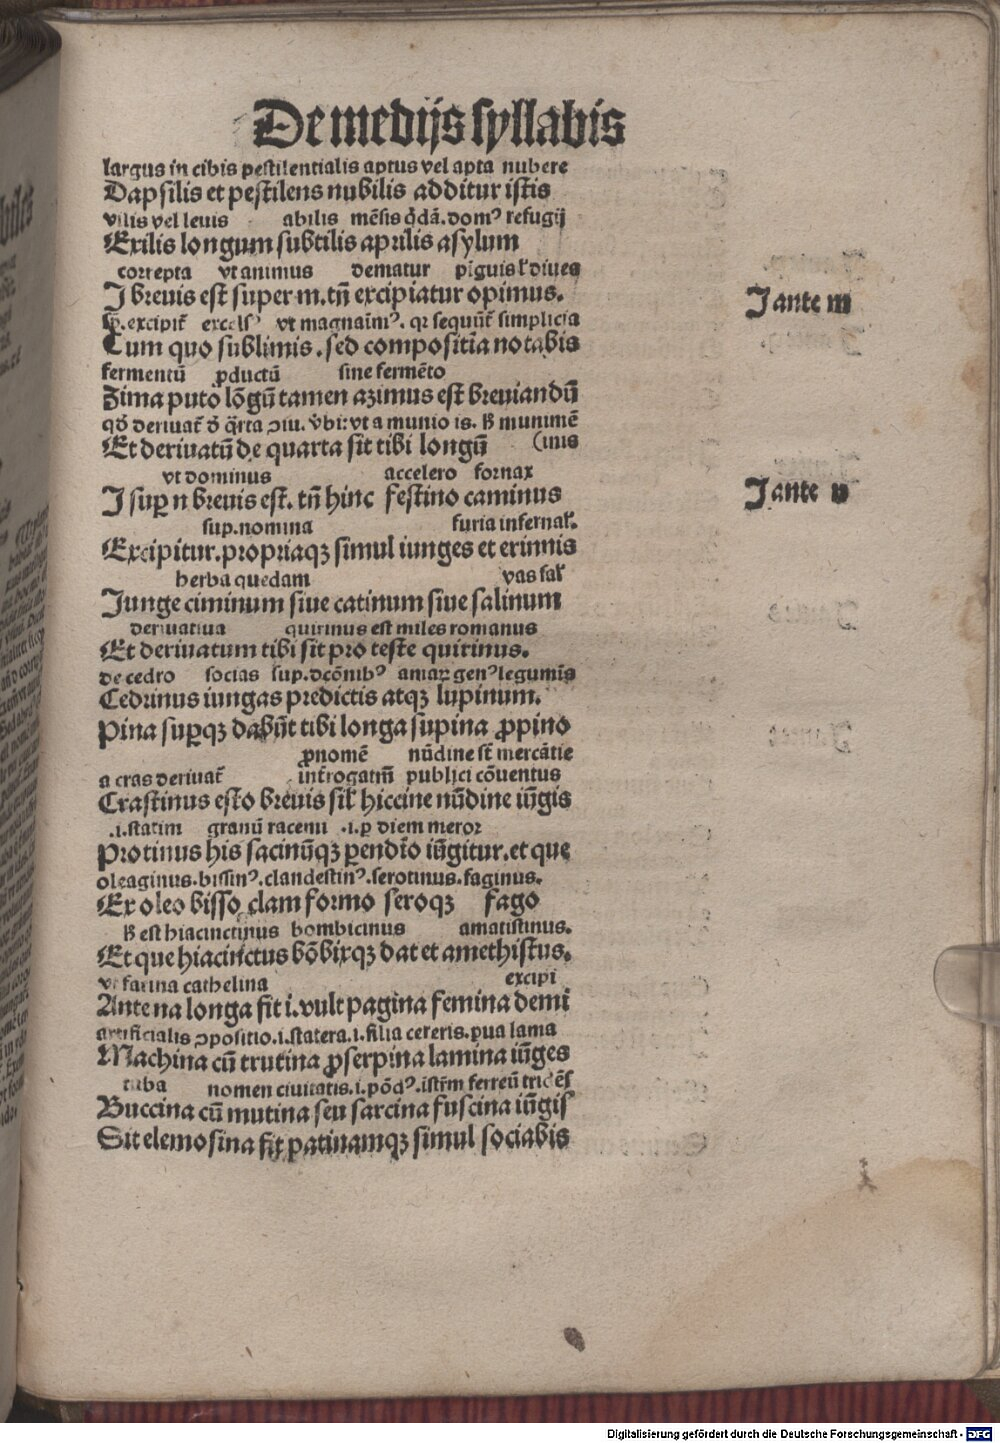 De medijs syllabis
largus in cibis pestilentialis aptus vel apta nubere
Dapsilis et pestilens nubilis additur istis
vilis vel leuis abilis mēsis q̄dā. domꝰ refugij
Exilis longum subtilis aprilis asylum
correpta vt animus dematur pīguis ł diues
I breuis est super m. tñ excipiatur opimus.
I ante m
excipiť excelsꝰ vt magnaīmꝰ. qꝛ sequūť simplicia
Cum quo sublimis. sed compositīa notabis
fermentū ꝓductū sine fermēto
Zima puto lōgū tamen azimus est breuiandū
qď deriuať ď q̄rta ꝯiu. v̄bi: vt a munio is. ß munimē
Et deriuatū de quarta sit tibi longū (inis
vt dominus accelero fornax
I suꝑ n breuis est. tñ hinc festino caminus
I ante n
sup. nomina furia infernał.
Excipitur. propriaqꝫ simul iunges et erinnis
herba quedam vas sał
Iunge ciminum siue catinum siue salinum
deriuatiua quirinus est miles romanus
Et deriuatum tibi sit pro teste quirinus.
de cedro socias sup. dcōnibꝰ amaꝝ genꝰ legumīs
Cedrinus iungas predictis atqꝫ lupinum.
Pina suꝑqꝫ dabūt tibi longa supina ꝓpino
ꝓnomē nūdine sť mercātie
a cras deriuať int̄rogatiū publici cōuentus
Crastinus esto breuis sił hiccine nūdine iūgis
.i. statim granū racemi .i. ꝑ diem meror
Protinus his facinūqꝫ ꝑendīo iūgitur. et que
oleaginus. bissinꝰ. clandestinꝰ. serotinus. faginus.
Ex oleo bisso clam formo seroqꝫ fago
ß est hiacinctinus bombicinus amatistinus.
Et que hiacinctus bōbixqꝫ dat et amethistus.
vt farina cathelina excipi
Ante na longa fit i. vult pagina femina demi
artificialis ꝯpositio .i. statera .i. filia cereris. ꝑua lama
Machina cū trutina ꝓserpina lamina iūges
tuba nomen ciuitatis .i. pōdꝰ. īstr̄m ferreū tridēs
Buccina cū mutina seu sarcina fuscina iūgis
Sit elemosina patinamqꝫ simul sociabis
Digitalisierung gefördert durch die Deutsche Forschungsgemeinschaft - DFG